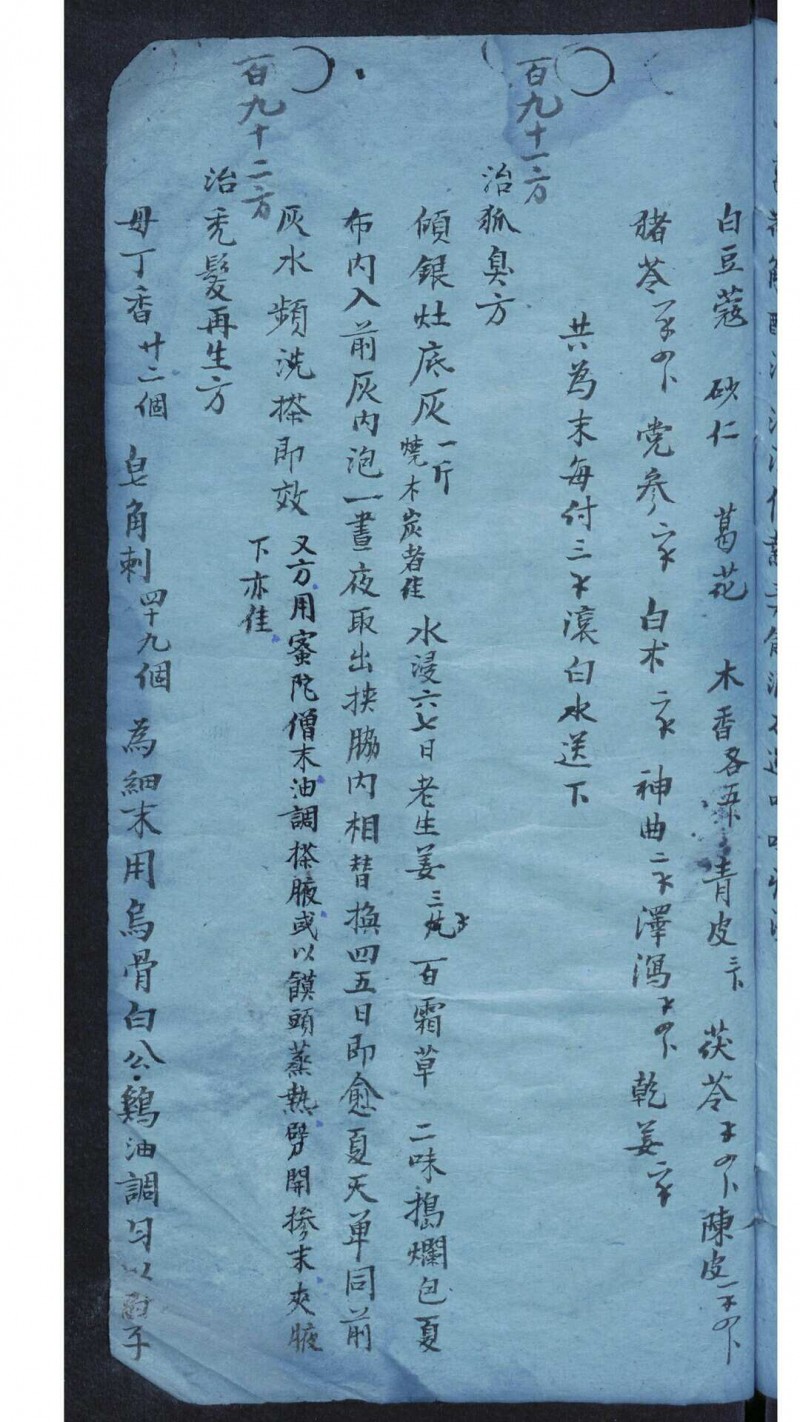 白豆蔻 砂仁 葛花 木香各五 青皮三 茯苓 陳皮
猪苓 党參 白术 神曲二 澤瀉 乾姜
共為末每付三 滾白水送下
百九十一方
治狐臭方
傾銀灶底灰一斤燒木炭者佳 水浸六七日老生姜三 百霜草 二味搗爛包夏
布内入前灰内泡一晝夜取出挾脇内相替換四五日即愈夏天單同前
灰水頻洗搽即效 又方用蜜陀僧末油調搽腋或以饃頭蒸熱劈開摻末夾腋
下亦佳
百九十二方
治禿髮再生方
母丁香廿二個 皂角刺四十九個 為細末用烏骨白公鷄油調匀以 子